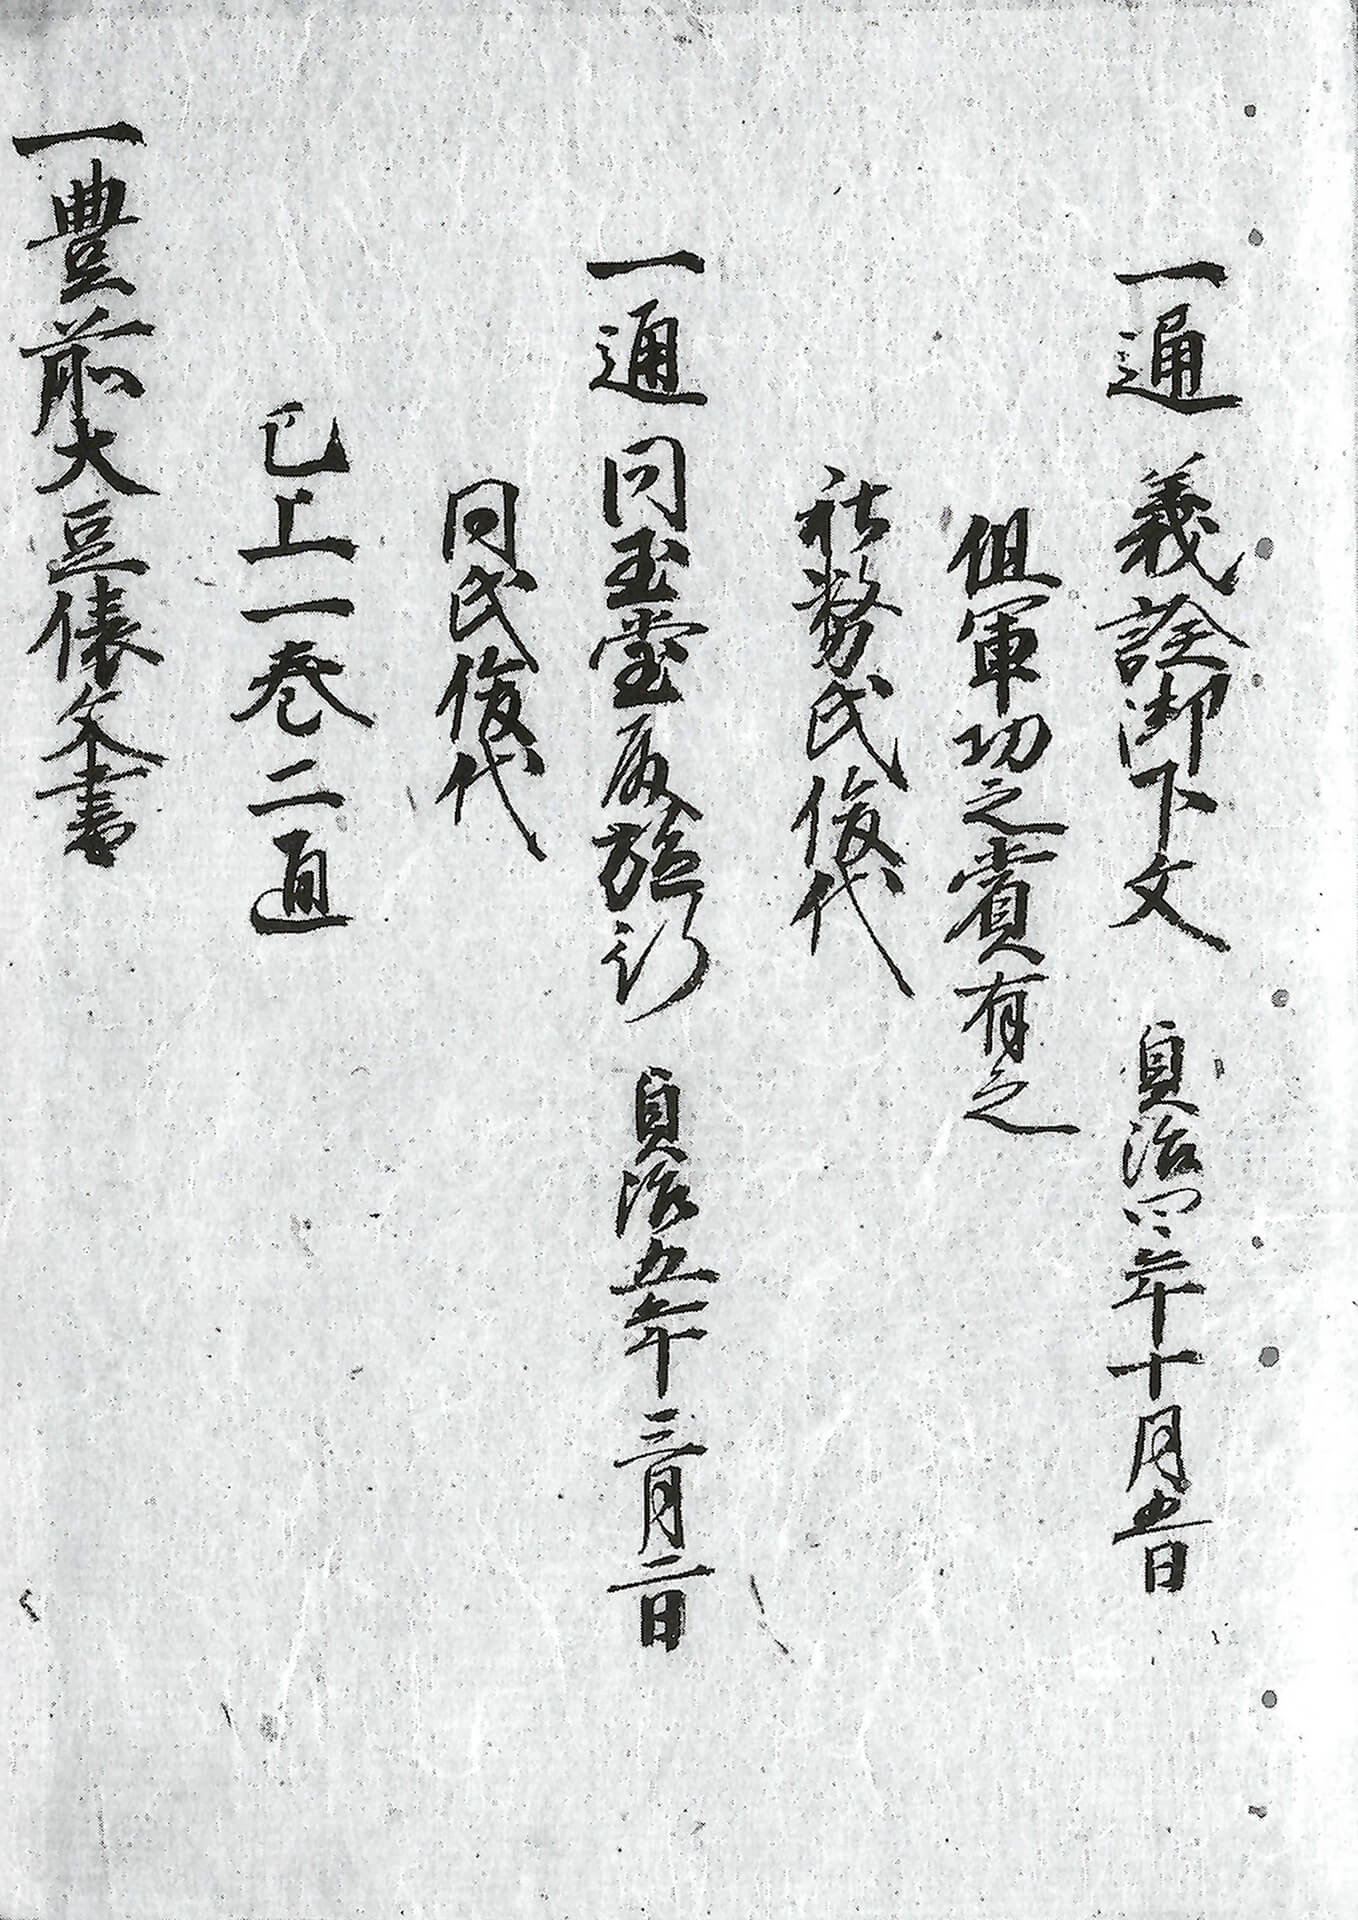 一通 義詮御下文 貞治四年十月五日
但軍功之賞有之
社務氏俊代
一通 同玉堂殿施行 貞治五年三月二日
同氏俊代
已上一巻二通
一豊前大豆俵文書